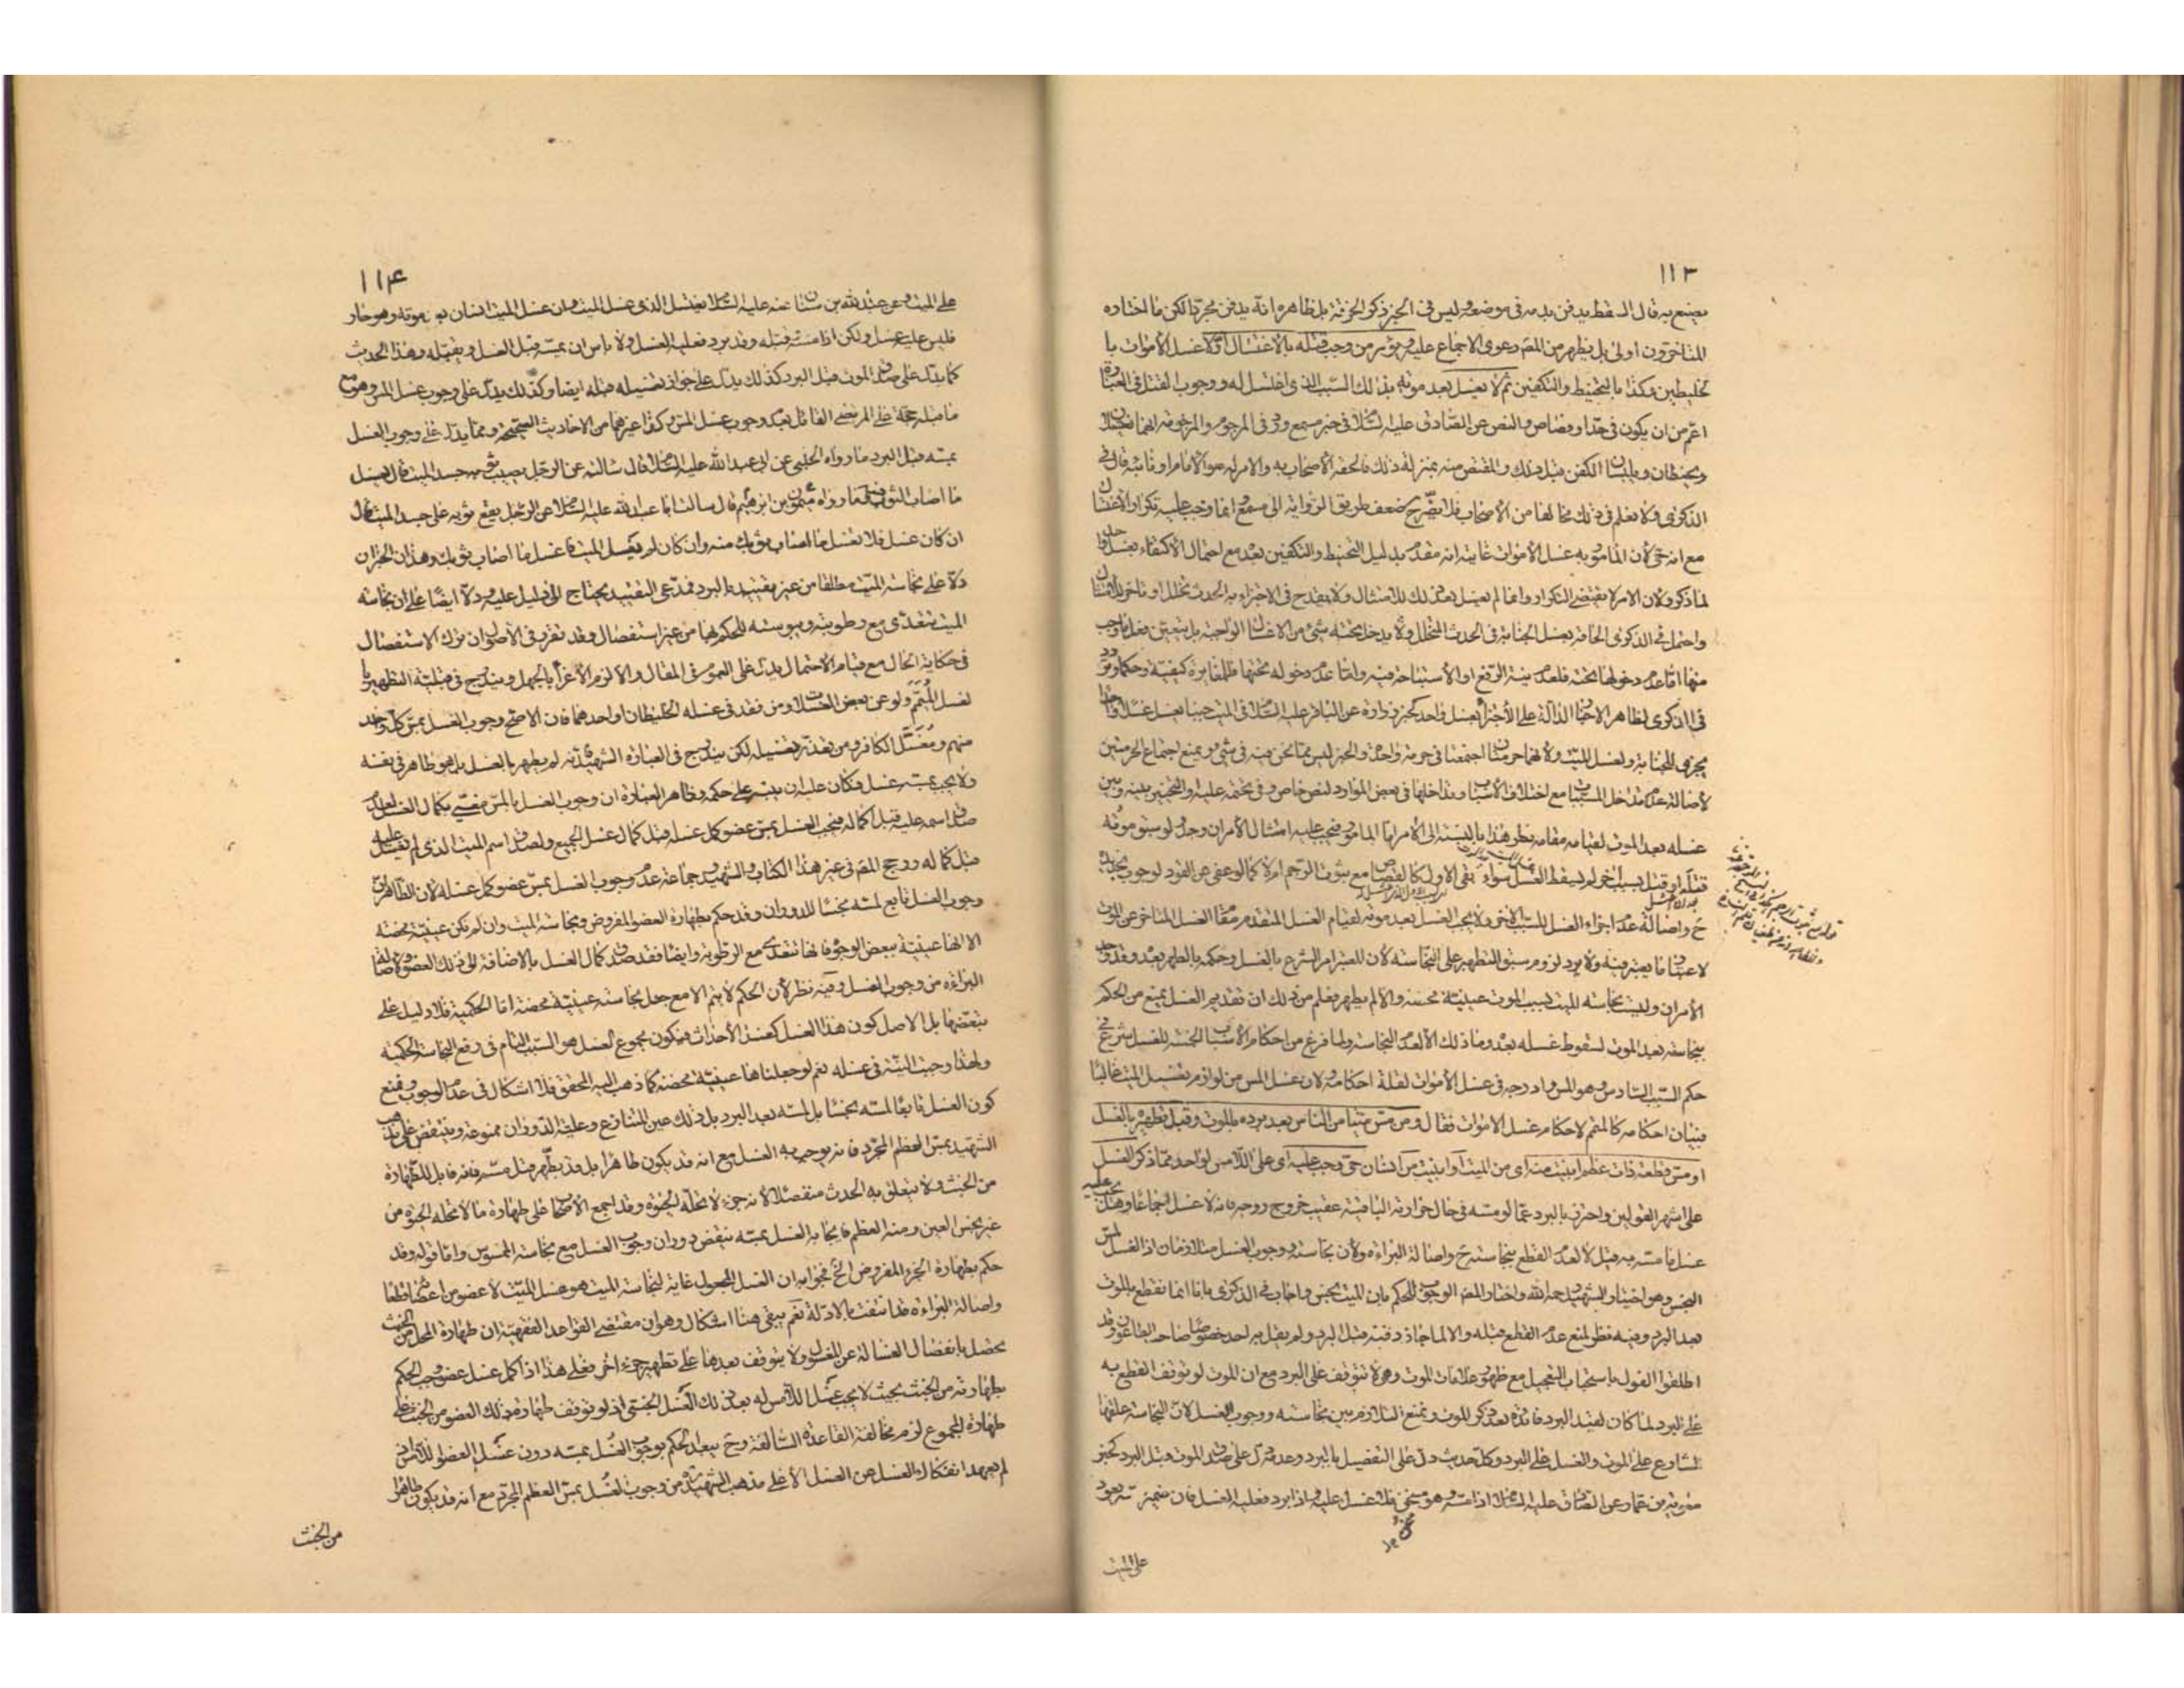 ١١٣
يصنع به قال السقط يدفن بدمه في موضعه وليس في الخبر ذكر الخرقة بل ظاهره انه يدفن مجردا لكن ما اختاره
المتاخرون اولى بل يظهر من المصنف دعوى الاجماع عليه ويؤمر من وجب قتله بالاغتسال اولا غسل الاموات با
لخليطين وكذا بالتحنيط والتكفين ثم لا يغسل بعد موته بذلك السبب الذي اغتسل له ووجوب القتل في العبارة
اعم من ان يكون في حد او قصاص والنص عن الصادق عليه السلام في خبر مسمع ورد في المرجوم والمرجومة انهما يغتسلان
ويحنطان ويلبسان الكفن قبل ذلك والمقتص منه بمنزلة ذلك فالحقه الاصحاب به والامر له هو الامام او نائبه قال في
الذكرى ولا نعلم في ذلك مخالفا من الاصحاب فلا يضر ح ضعف طريق الرواية الى مسمع وانما وجب عليه تكرار الاغتسال
مع انه حي لان المامور به غسل الاموات غايته انه مقدم بدليل التحنيط والتكفين بعد مع احتمال الاكتفاء بغسل واحد
لما ذكر ولان الامر لا يقتضي التكرار وانما لم يغسل بعد ذلك للامتثال ولا يقدح في الاجزاء به الحدث تخلل او تاخر للامتثال
واحتمل في الذكرى الحاقه بغسل الجنابة في الحدث المتخلل ولا يدخل تحته شيء من الاغسال الواجبة بل يتعين فعل ما وجب
منها اما عدم دخولها تحته فلعدم نية الرفع او الاستباحة فيه واما عدم دخوله تحتها فلمغايرته كيفية وحكما وتردد
في الذكرى لظاهر الاخبار الدالة على الاجتزاء بغسل واحد كخبر زرارة عن الباقر عليه السلام في الميت جنبا يغسل غسلا واحدا
يجزي للجنابة ولغسل الميت ولانهما حرمتان اجتمعتا في حرمة واحدة والخبر ليس مما نحن فيه في شيء ويمنع اجتماع الحرمتين
لاصالة عدم تداخل المسببات مع اختلاف الاسباب وتداخلها في بعض الموارد لنص خاص وفي تحتمه عليه والتخيير بينه وبين
غسله بعد الموت لقيامه مقامه نظر هذا بالنسبة الى الامر اما المامور فيجب عليه امتثال الامر ان وجد ولو سبق موته
قتله او قتل بسبب اخر لم يسقط الغسل سواء بقي الاول كالقصاص مع ثبوت الرجم ام لا كما لو عفي عن القود لوجوب تجديده
ح واصالة عدم اجزاء الغسل للسبب الاخر ولا يجب الغسل بعد موته لقيام الغسل المتقدم مقام الغسل المتاخر عن الموت
لاعتبار ما يعتبر فيه ولا يرد لزوم سبق التطهير على النجاسة لان المعتبر امر الشرع بالغسل وحكمه بالطهر بعد وقد وجد
الامران وليست نجاسة الميت بسبب الموت عينية محضة والا لم يطهر فعلم من ذلك ان تقديم الغسل يمنع من الحكم
بنجاسته بعد الموت لسقوط غسله بعد وما ذلك الا لعدم النجاسة ولما فرغ من احكام الاسباب الخمسة للغسل شرع في
حكم السبب السادس وهو المس وادرجه في غسل الاموات لقلة احكامه ولان غسل المس من لوازم تغسيل الميت غالبا
فبيان احكامه كالمتمم لاحكام غسل الاموات فقال ومن مس ميتا من الناس بعد برده بالموت وقبل تطهيره بالغسل
او مس قطعة ذات عظم ابينت منه اي من الميت او ابينت من انسان حي وجب عليه اي على اللامس لواحد مما ذكر الغسل
على اشهر القولين واحترز بالبرد عما لو مسه في حال حرارته الباقية عقيب خروج روحه فانه لا غسل اجماعا وهل يجب عليه
غسل ما مسه به قيل لا لعدم القطع بنجاسته ح واصالة البراءة ولان نجاسته ووجوب الغسل متلازمان اذ الغسل لمس
النجس وهو اختيار الشهيد رحمه الله واختار المصنف الوجوب للحكم بان الميت نجس واجاب في الذكرى بانا انما نقطع بالموت
بعد البرد وفيه نظر لمنع عدم القطع قبله والا لما جاز دفنه قبل البرد ولم يقل به احد خصوصا صاحب الطاعون وقد
اطلقوا القول باستحباب التعجيل مع ظهور علامات الموت وهي لا تتوقف على البرد مع ان الموت لو توقف القطع به
على البرد لما كان لقيد البرد فائدة بعد ذكر الموت ونمنع التلازم بين نجاسته ووجوب الغسل لان النجاسة علقها
الشارع على الموت والغسل على البرد وكل حديث دل على التفصيل بالبرد وعدمه دل على صدق الموت قبل البرد كخبر
معوية بن عمار عن الصادق عليه السلام اذا مسه وهو سخن فلا غسل عليه واذا برد فعليه الغسل فان ضمير مسه يعود
على الميت
١١٤
على الميت وعن عبد الله بن سنان عنه عليه السلام يغتسل الذي غسل الميت وان غسل الميت انسان بعد موته وهو حار
فليس عليه غسل ولكن اذا مسه وقبله وقد برد فعليه الغسل ولا باس ان يمسه قبل الغسل ويقبله وهذا الحديث
كما يدل على صدق الموت قبل البرد كذلك يدل على جواز تغسيله قبله ايضا وكذلك يدل على وجوب غسل المس وهو مع
ما قبله حجة على المرتضى القائل بعدم وجوب غسل المس وكذا غيرهما من الاحاديث الصحيحة ومما يدل على وجوب الغسل
بمسه قبل البرد ما رواه الحلبي عن ابي عبد الله عليه السلام قال سالته عن الرجل يصيب ثوبه جسد الميت قال يغسل
ما اصاب الثوب وما رواه ميمون بن ابرهيم قال سالت ابا عبد الله عليه السلام عن الرجل يقع ثوبه على جسد الميت قال
ان كان غسل فلا تغسل ما اصاب ثوبك منه وان كان لم يغسل الميت فاغسل ما اصاب ثوبك وهذان الخبران
دلا على نجاسة الميت مطلقا من غير تقييد بالبرد فمدعي التقييد يحتاج الى دليل عليه ودلا ايضا على ان نجاسة
الميت تتعدى مع رطوبته ويبوسته للحكم بها من غير استفصال وقد تقرر في الاصول ان ترك الاستفصال
في حكاية الحال مع قيام الاحتمال يدل على العموم في المقال والا لزم الاغراء بالجهل ويندرج في قبلية التطهير با
لغسل الميمم ولو عن بعض الغسلات ومن فقد في غسله الخليطان او احدهما فان الاصح وجوب الغسل بمس كل واحد
منهم ومغسل الكافر ومن تعذر تغسيله لكن يندرج في العبارة الشهيد فانه لم يطهر بالغسل بل هو طاهر في نفسه
ولا يجب بمسه غسل وكان عليه ان ينبه على حكمه وظاهر العبارة ان وجوب الغسل بالمس مغيى بكمال الغسل لعدم
صدق اسمه عليه قبل اكماله فيجب الغسل بمس عضو كمل غسله قبل كمال غسل الجميع ولصدق اسم الميت الذي لم يغسل عليه
قبل كماله ورجح المصنف في غير هذا الكتاب والشهيد وجماعة عدم وجوب الغسل بمس عضو كمل غسله لان الظاهر ان
وجوب الغسل تابع لمسه نجسا للدوران وقد حكم بطهارة العضو المفروض ونجاسة الميت وان لم تكن عينية محضة
الا انها عينية ببعض الوجوه فانها تتعدى مع الرطوبة وايضا فقد صدق كمال الغسل بالاضافة الى ذلك العضو ولاصالة
البراءة من وجوب الغسل وفيه نظر لان الحكم لا يتم الا مع جعل نجاسته عينية محضة اما الحكمية فلا دليل على
تبعضها بل الاصل كون هذا الغسل كغسل الاحداث فيكون مجموع الغسل هو السبب التام في رفع النجاسة الحكمية
ولهذا وجبت النية في غسله نعم لو جعلناها عينية محضة كما ذهب اليه المحقق فلا اشكال في عدم الوجوب ونمنع
كون الغسل تابعا لمسه نجسا بل لمسه بعد البرد بل ذلك عين المتنازع وعلية الدوران ممنوعة وينتقض على مذهب
الشهيد بمس العظم المجرد فانه يوجب به الغسل مع انه قد يكون طاهرا بل قد يطهر قبل مسه فانه قابل للطهارة
من الخبث ولا يتعلق به الحدث منفصلا لانه جزء لا تحله الحيوة وقد اجمع الاصحاب على طهارة ما لا تحله الحيوة من
غير نجس العين ومنه العظم فايجابه الغسل بمسه ينقض دوران وجوب الغسل مع نجاسة الممسوس واما قوله وقد
حكم بطهارة الجزء المفروض الخ فجوابه ان الغسل المجعول غاية لنجاسة الميت هو غسل الميت لا عضو من اعضائه قطعا
واصالة البراءة قد انتفت بالادلة نعم يبقى هنا اشكال وهو ان مقتضى القواعد الفقهية ان طهارة المحل من الخبث
يحصل بانفصال الغسالة عن المغسول ولا يتوقف بعدها على تطهير جزء اخر فعلى هذا اذا كمل غسل عضو وجب الحكم
بطهارته من الخبث بحيث لا يجب غسل اللامس له بعد ذلك الغسل الخبثي اذ لو توقف طهارة ذلك العضو من الخبث على
طهارة المجموع لزم مخالفة القاعدة السالفة وح يبعد الحكم بوجوب الغسل بمسه دون غسل العضو اللامس اذ
لم يعهد انفكاك الغسل عن الغسل الا على مذهب الشهيد من وجوب الغسل بمس العظم المجرد مع انه قد يكون طاهرا
من الخبث